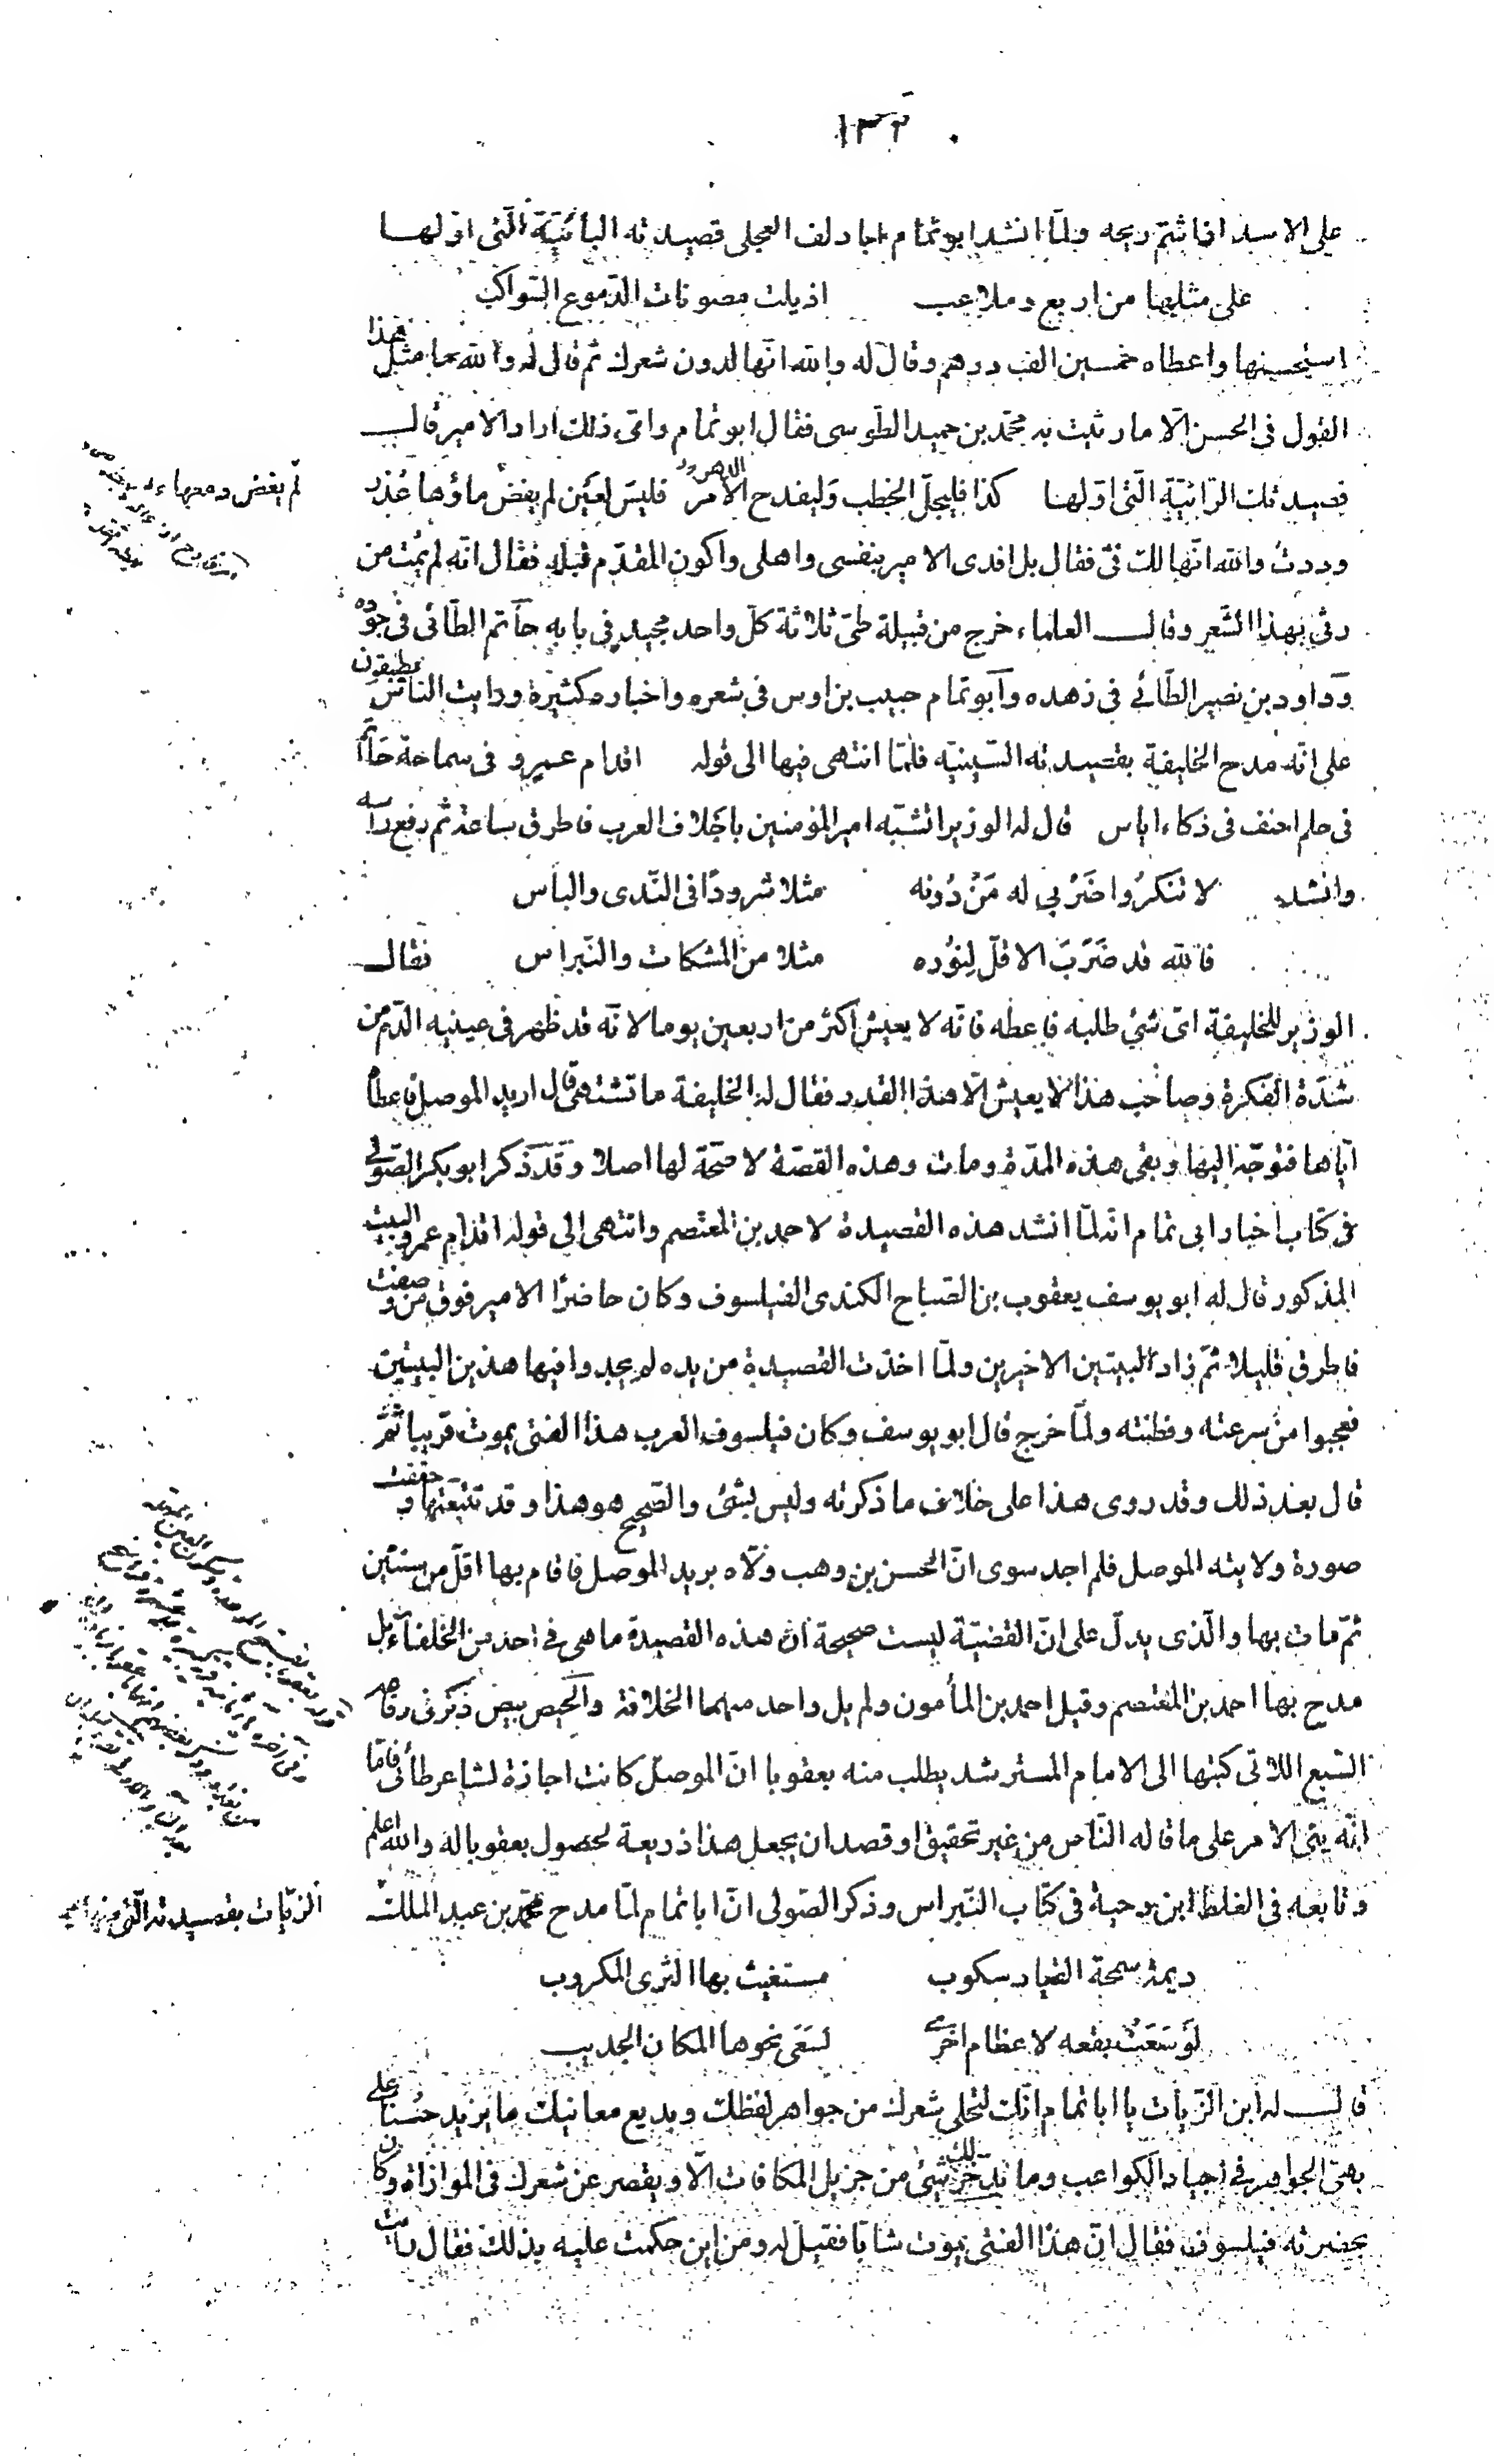 ١٣٢
على الاسد اذا شمّ ريحه ولمّا انشد ابو تمّام ابا دلف العجلى قصيدته البائيّة الّتى اوّلها
على مثلها من اربع وملاعب اذيلت مصونات الدّموع السّواكب
استحسنها واعطاه خمسين الف درهم وقال له والله انّها لدون شعرك ثمّ قال له والله ما مثل هذا
القول فى الحسن الّا ما رثيت به محمّد بن حميد الطّوسى فقال ابو تمّام واىّ ذلك اراد الامير قال
قصيدتك الرّائيّة الّتى اوّلها كذا فليجلّ الخطب وليفدح الامر فليس لعين لم يفض ماؤها عذر
وددت والله انّها لك فىّ فقال بل افدى الامير بنفسى واهلى واكون المقدّم قبله فقال انّه لم يمت من
رثى بهذا الشّعر وقال العلماء خرج من قبيلة طىّ ثلاثة كلّ واحد مجيد فى بابه حاتم الطّائى فى جوده
وداود بن نصير الطّائى فى زهده وابو تمام حبيب بن اوس فى شعره واخباره كثيرة ورايت الناس مطبقون
على انّه مدح الخليفة بقصيدته السّينيّه فلمّا انتهى فيها الى قوله اقدام عمرو فى سماحة حاتم
فى حلم احنف فى ذكاء اياس قال له الوزير اتشبّه امير المؤمنين باجلاف العرب فاطرق ساعة ثم رفع راسه
وانشد لا تنكروا ضربى له من دونه مثلا شرودا فى النّدى والباس
فالله قد ضرب الاقلّ لنوره مثلا من المشكات والنّبراس فقال
الوزير للخليفة اىّ شئ طلبه فاعطه فانّه لا يعيش اكثر من اربعين يوما لانّه قد ظهر فى عينيه الدّم من
شدّة الفكرة وصاحب هذا لا يعيش الّا هذا القدر فقال له الخليفة ما تشتهى قال اريد الموصل فاعطاه
ايّاها فتوجّه اليها وبقى هذه المدّة ومات وهذه القصّة لا صحّة لها اصلا وقد ذكر ابو بكر الصّولى
فى كتاب اخبار ابى تمام انه لمّا انشد هذه القصيدة لاحمد بن المعتصم وانتهى الى قوله اقدام عمرو البيت
المذكور قال له ابو يوسف يعقوب بن الصّباح الكندى الفيلسوف وكان حاضرا الامير فوق من وصفت
فاطرق قليلا ثمّ زاد البيتين الاخيرين ولمّا اخذت القصيدة من يده لم يجدوا فيها هذين البيتين
فعجبوا من سرعته وفطنته ولمّا خرج قال ابو يوسف وكان فيلسوف العرب هذا الفتى يموت قريبا ثمّ
قال بعد ذلك وقد روى هذا على خلاف ما ذكرته وليس بشئ والصّحيح هو هذا وقد تتبّعتها وحققت
صورة ولايته الموصل فلم اجد سوى انّ الحسن بن وهب ولّاه بريد الموصل فاقام بها اقلّ من سنتين
ثمّ مات بها والّذى يدلّ على انّ القضيّة ليست صحيحة انّ هذه القصيدة ما هى فى احد من الخلفاء بل
مدح بها احمد بن المعتصم وقيل احمد بن المأمون ولم يل واحد منهما الخلافة والحيص بيص ذكر فى رقاعه
السّبع اللاتى كتبها الى الامام المسترشد يطلب منه بعقوبا انّ الموصل كانت اجازة لشاعر طائى فامّا
انّه بنى الامر على ما قاله النّاس من غير تحقيق او قصد ان يجعل هذا ذريعة لحصول بعقوبا له والله اعلم
وتابعه فى الغلط ابن دحية فى كتاب النّبراس وذكر الصّولى انّ ابا تمام لمّا مدح محمّد بن عبد الملك
ديمة سمحة القياد سكوب مستغيث بها الثرى المكروب
لو سعت بقعه لاعظام اخرى لسعى نحوها المكان الجديب
قال له ابن الزّيات يا ابا تمام انّك لتحلى شعرك من جواهر لفظك وبديع معانيك ما يزيد حسنا على
بهىّ الجواهر فى اجياد الكواعب وما يدّخر لك شئ من جزيل المكافات الّا ويقصر عن شعرك فى الموازاة وكان
بحضرته فيلسوف فقال انّ هذا الفتى يموت شابّا فقيل له ومن اين حكمت عليه بذلك فقال رأيت
لم يغض دمعها
الزيّات بقصيدته الّتى